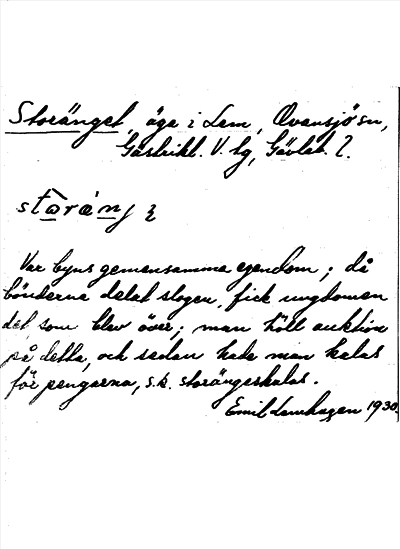 Storänget, äga i Lem, Ovansjö sn,
Gästrikl. V. tg, Gävleb. l.
Var byns gemensamma egendom; då
bönderna delat slogen, fick ungdomen
det som blev över; man höll auktion
på detta, och sedan hade man kalas
för pengarna, s.k. storängeskalas.
Emil Lemhagen 1930.